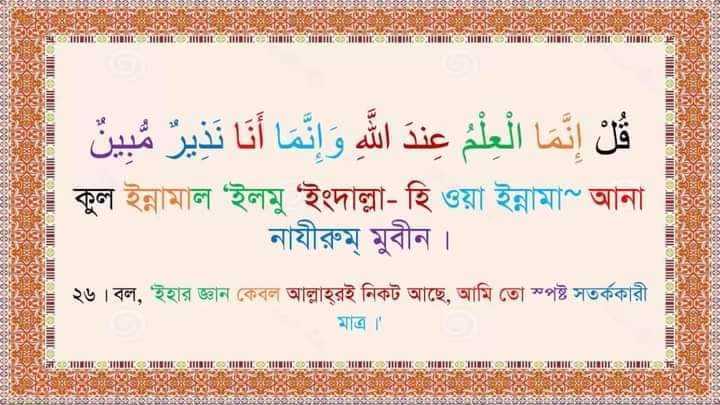 قُلْ إِنَّمَا الْعِلْمُ عِندَ اللَّهِ وَإِنَّمَا أَنَا نَذِيرٌ مُّبِينٌ
কুল ইন্নামাল ‘ইলমু ‘ইংদাল্লা- হি ওয়া ইন্নামা~ আনা
নাযীরুম্ মুবীন ।
২৬ । বল, ‘ইহার জ্ঞান কেবল আল্লাহ্‌রই নিকট আছে, আমি তো স্পষ্ট সতর্ককারী
মাত্র ।'